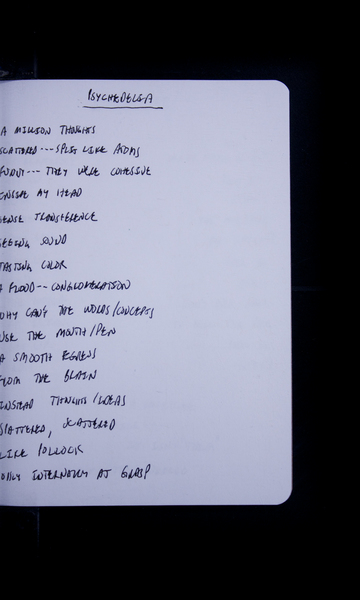 PSYCHEDELIA
A MILLION THOUGHTS
SCATTERED --- SPLIT LIKE ATOMS
FUNNY --- THEY WERE COHESIVE
INSIDE MY HEAD
SENSE TRANSFERENCE
SEEING SOUND
TASTING COLOR
A FLOOD -- CONGLOMERATION
WHY CAN'T THE WORDS/CONCEPTS
USE THE MOUTH/PEN
A SMOOTH EGRESS
FROM THE BRAIN
INSTEAD THOUGHTS/IDEAS
SPLATTERED, SCATTERED
LIKE POLLOCK
ONLY INTERNALLY AT GRASP